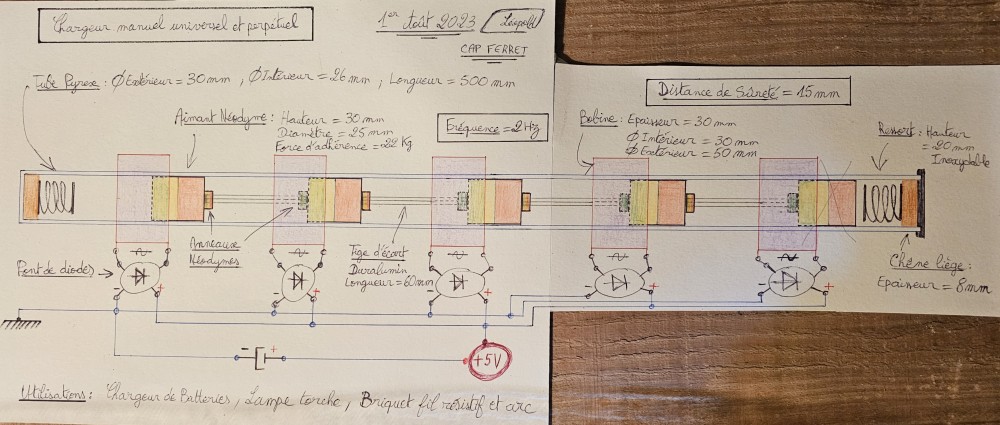 Chargeur manuel universel et perpétuel
1er Août 2023
Léopold
CAP FERRET
Tube Pyrexe : Ø Extérieur = 30 mm , Ø Intérieur = 26 mm , Longueur = 500 mm
Distance de Sûreté = 15 mm
Aimant Néodyme : Hauteur = 30 mm
Diamètre = 25 mm
Force d'adhérence = 22 Kg
Fréquence = 2 Hz
Bobine : Epaisseur = 30 mm
Ø Intérieur = 30 mm
Ø Extérieur = 50 mm
Ressort : Hauteur
= 20 mm
Inoxydable
Anneaux
Néodymes
Tige d'écart
Duralumin
Longueur = 60 mm
Pont de diodes
Chêne liège :
Epaisseur = 8 mm
~
~
~
~
~
- +
- +
- +
- +
- +
- +
+5V
Utilisations : Chargeur de Batteries , Lampe torche , Briquet fil résistif et arc